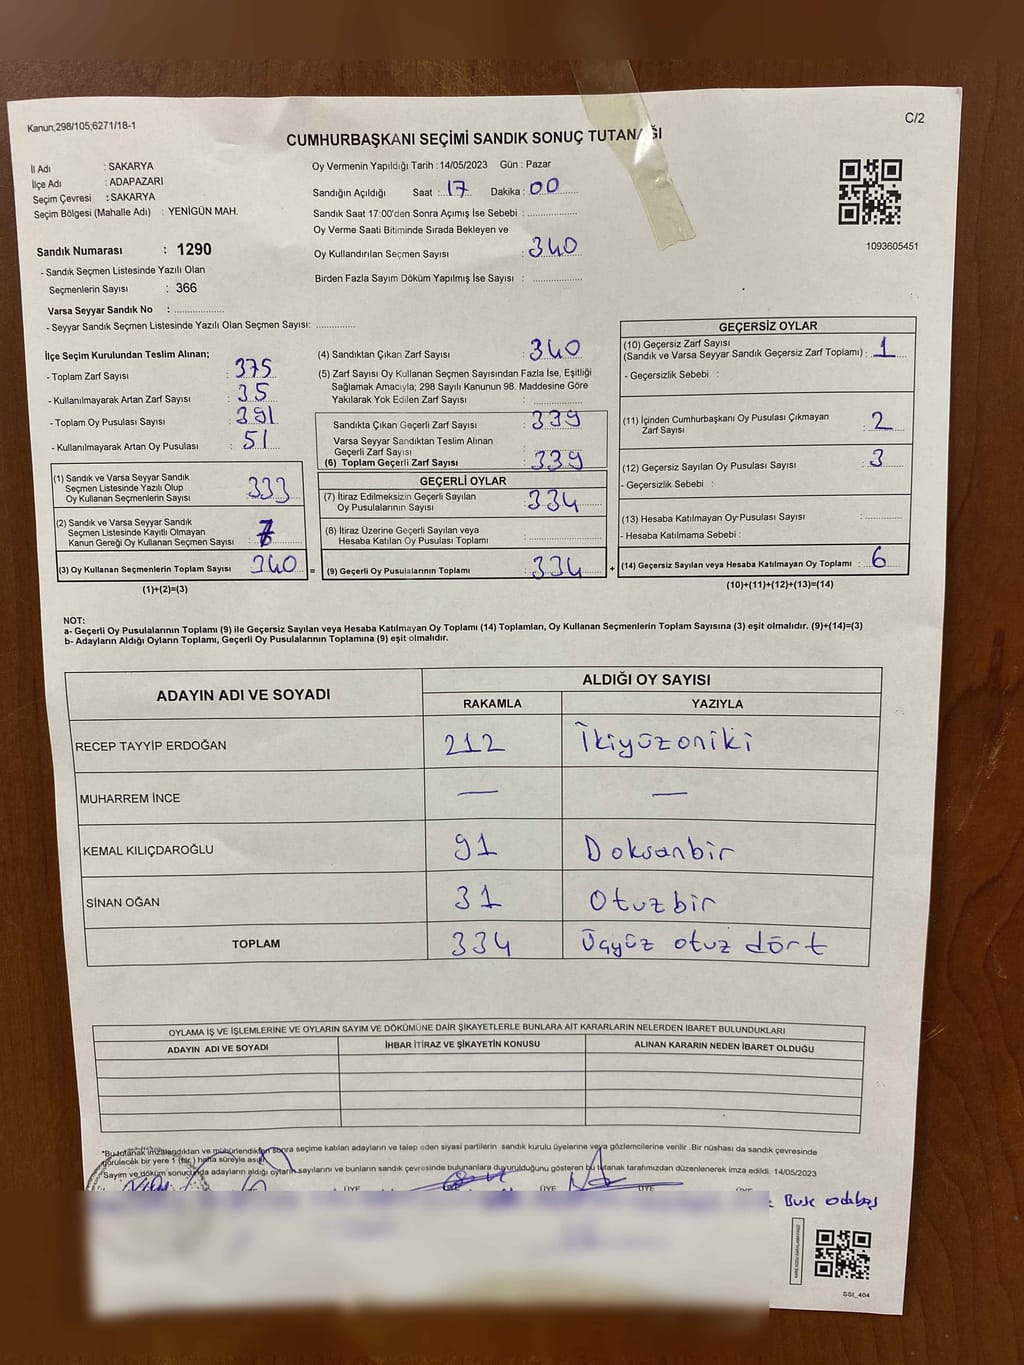 Kanun;298/105;6271/18-1
C/2
CUMHURBAŞKANI SEÇİMİ SANDIK SONUÇ TUTANAĞI
İl Adı : SAKARYA
İlçe Adı : ADAPAZARI
Seçim Çevresi : SAKARYA
Seçim Bölgesi (Mahalle Adı) : YENİGÜN MAH.
Oy Vermenin Yapıldığı Tarih :14/05/2023 Gün : Pazar
Sandığın Açıldığı Saat : 17 Dakika : 00
Sandık Saat 17:00'den Sonra Açımış İse Sebebi :
Oy Verme Saati Bitiminde Sırada Bekleyen ve
Oy Kullandırılan Seçmen Sayısı : 340
Birden Fazla Sayım Döküm Yapılmış İse Sayısı :
1093605451
Sandık Numarası : 1290
- Sandık Seçmen Listesinde Yazılı Olan
Seçmenlerin Sayısı : 366
Varsa Seyyar Sandık No :
- Seyyar Sandık Seçmen Listesinde Yazılı Olan Seçmen Sayısı:
İlçe Seçim Kurulundan Teslim Alınan;
- Toplam Zarf Sayısı : 375
- Kullanılmayarak Artan Zarf Sayısı : 35
- Toplam Oy Pusulası Sayısı : 391
- Kullanılmayarak Artan Oy Pusulası : 51
(1) Sandık ve Varsa Seyyar Sandık
Seçmen Listesinde Yazılı Olup
Oy Kullanan Seçmenlerin Sayısı : 333
(2) Sandık ve Varsa Seyyar Sandık
Seçmen Listesinde Kayıtlı Olmayan
Kanun Gereği Oy Kullanan Seçmen Sayısı : 7
(3) Oy Kullanan Seçmenlerin Toplam Sayısı : 340
(1)+(2)=(3)
(4) Sandıktan Çıkan Zarf Sayısı : 340
(5) Zarf Sayısı Oy Kullanan Seçmen Sayısından Fazla İse, Eşitliği
Sağlamak Amacıyla; 298 Sayılı Kanunun 98. Maddesine Göre
Yakılarak Yok Edilen Zarf Sayısı :
Sandıkta Çıkan Geçerli Zarf Sayısı : 339
Varsa Seyyar Sandıktan Teslim Alınan
Geçerli Zarf Sayısı :
(6) Toplam Geçerli Zarf Sayısı : 339
GEÇERLİ OYLAR
(7) İtiraz Edilmeksizin Geçerli Sayılan
Oy Pusulalarının Sayısı : 334
(8) İtiraz Üzerine Geçerli Sayılan veya
Hesaba Katılan Oy Pusulası Toplamı :
= (9) Geçerli Oy Pusulalarının Toplamı : 334 +
GEÇERSİZ OYLAR
(10) Geçersiz Zarf Sayısı
(Sandık ve Varsa Seyyar Sandık Geçersiz Zarf Toplamı) : 1
- Geçersizlik Sebebi :
(11) İçinden Cumhurbaşkanı Oy Pusulası Çıkmayan
Zarf Sayısı : 2
(12) Geçersiz Sayılan Oy Pusulası Sayısı : 3
- Geçersizlik Sebebi :
(13) Hesaba Katılmayan Oy Pusulası Sayısı :
- Hesaba Katılmama Sebebi :
(14) Geçersiz Sayılan veya Hesaba Katılmayan Oy Toplamı : 6
(10)+(11)+(12)+(13)=(14)
NOT:
a- Geçerli Oy Pusulalarının Toplamı (9) ile Geçersiz Sayılan veya Hesaba Katılmayan Oy Toplamı (14) Toplamları, Oy Kullanan Seçmenlerin Toplam Sayısına (3) eşit olmalıdır. (9)+(14)=(3)
b- Adayların Aldığı Oyların Toplamı, Geçerli Oy Pusulalarının Toplamına (9) eşit olmalıdır.
ADAYIN ADI VE SOYADI
ALDIĞI OY SAYISI
RAKAMLA YAZIYLA
RECEP TAYYİP ERDOĞAN 212 İkiyüzoniki
MUHARREM İNCE — —
KEMAL KILIÇDAROĞLU 91 Doksanbir
SİNAN OĞAN 31 Otuzbir
TOPLAM 334 Üçyüz otuz dört
OYLAMA İŞ VE İŞLEMLERİNE VE OYLARIN SAYIM VE DÖKÜMÜNE DAİR ŞİKAYETLERLE BUNLARA AİT KARARLARIN NELERDEN İBARET BULUNDUKLARI
ADAYIN ADI VE SOYADI İHBAR İTİRAZ VE ŞİKAYETİN KONUSU ALINAN KARARIN NEDEN İBARET OLDUĞU
*Bu tutanak imzalandıktan ve mühürlendikten sonra seçime katılan adayların ve talep eden siyasi partilerin sandık kurulu üyelerine veya gözlemcilerine verilir .Bir nüshası da sandık çevresinde
görülecek bir yere 1 (bir) hafta süreyle asılır.
*Sayım ve döküm sonucunda adayların aldığı oyların sayılarını ve bunların sandık çevresinde bulunanlara duyurulduğunu gösteren bu tutanak tarafımızdan düzenlenerek imza edildi. 14/05/2023
ÜYE ÜYE ÜYE ÜYE
SSI_404